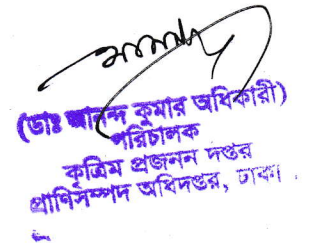 (ডাঃ আনন্দ কুমার অধিকারী)
পরিচালক
কৃত্রিম প্রজনন দপ্তর
প্রাণিসম্পদ অধিদপ্তর, ঢাকা।